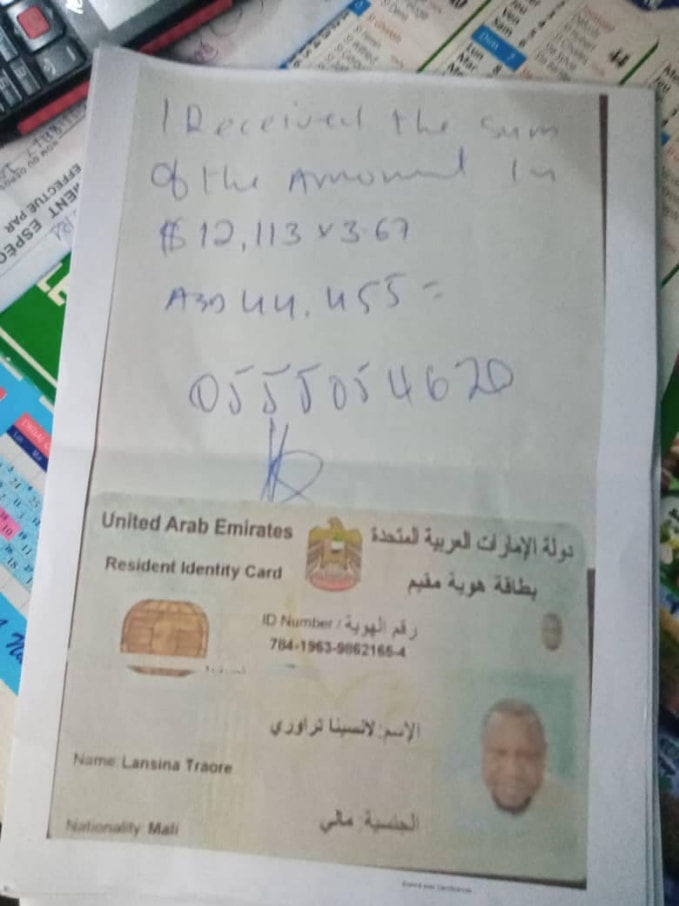 I Received the Sum
of the Amount In
$ 12,113 x 3.67
AED 44.455 =
0555054620
United Arab Emirates
دولة الإمارات العربية المتحدة
Resident Identity Card
بطاقة هوية مقيم
ID Number / رقم الهوية
784-1963-9862165-4
الإسم: لانسينا تراوري
Name: Lansina Traore
الجنسية: مالي
Nationality: Mali
EFFECTUE PAR
44
Lun
Mar